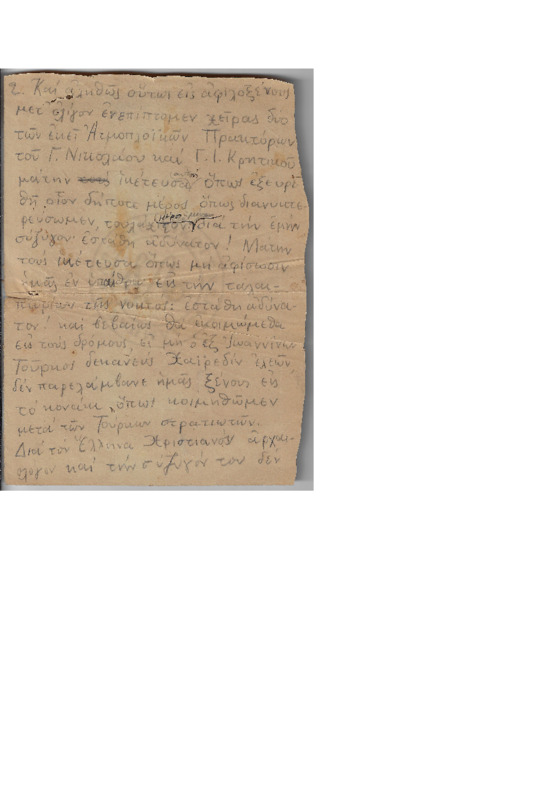 2. Καί ἀληθῶς οὕτω εἰς ἀφιλοξένους
μετ' ὀλίγον ἐνεπίπτομεν χεῖρας δύο
τῶν ἐκεῖ Ἀτμοπλοϊκῶν Πρακτόρων
τοῦ Γ. Νικολάου καί Γ. Ι. Κρητικοῦ
μάτην ἱκέτευσα ὅπως ἐξευρε
θῇ οἷον δήποτε μέρος ὅπως διανυκτε
ρεύσωμεν, τοὐλάχιστον διά τήν ἐμήν
σύζυγον· ἐστάθη ἀδύνατον! Μάτην
τούς ἱκέτευσα ὅπως μή ἀφίσωσιν
ἡμᾶς ἐν ὑπαίθρῳ εἰς τήν ταλαι-
πωρίαν τῆς νυκτός: ἐστάθη ἀδύνα-
τον! καί βεβαίως θά ἐκοιμώμεθα
εἰς τούς δρόμους, εἰ μή ὁ ἐξ Ἰωαννίνων
Τοῦρκος δεκανεύς Χαϊρεδίν ἐλεῶν
δέν παρελάμβανε ἡμᾶς ξένους εἰς
τό κονάκι, ὅπως κοιμηθῶμεν
μετά τῶν Τούρκων στρατιωτῶν.
Διά τόν Ἕλληνα Χριστιανόν ἀρχαι-
ολόγον καί τήν σύζυγόν του δέν